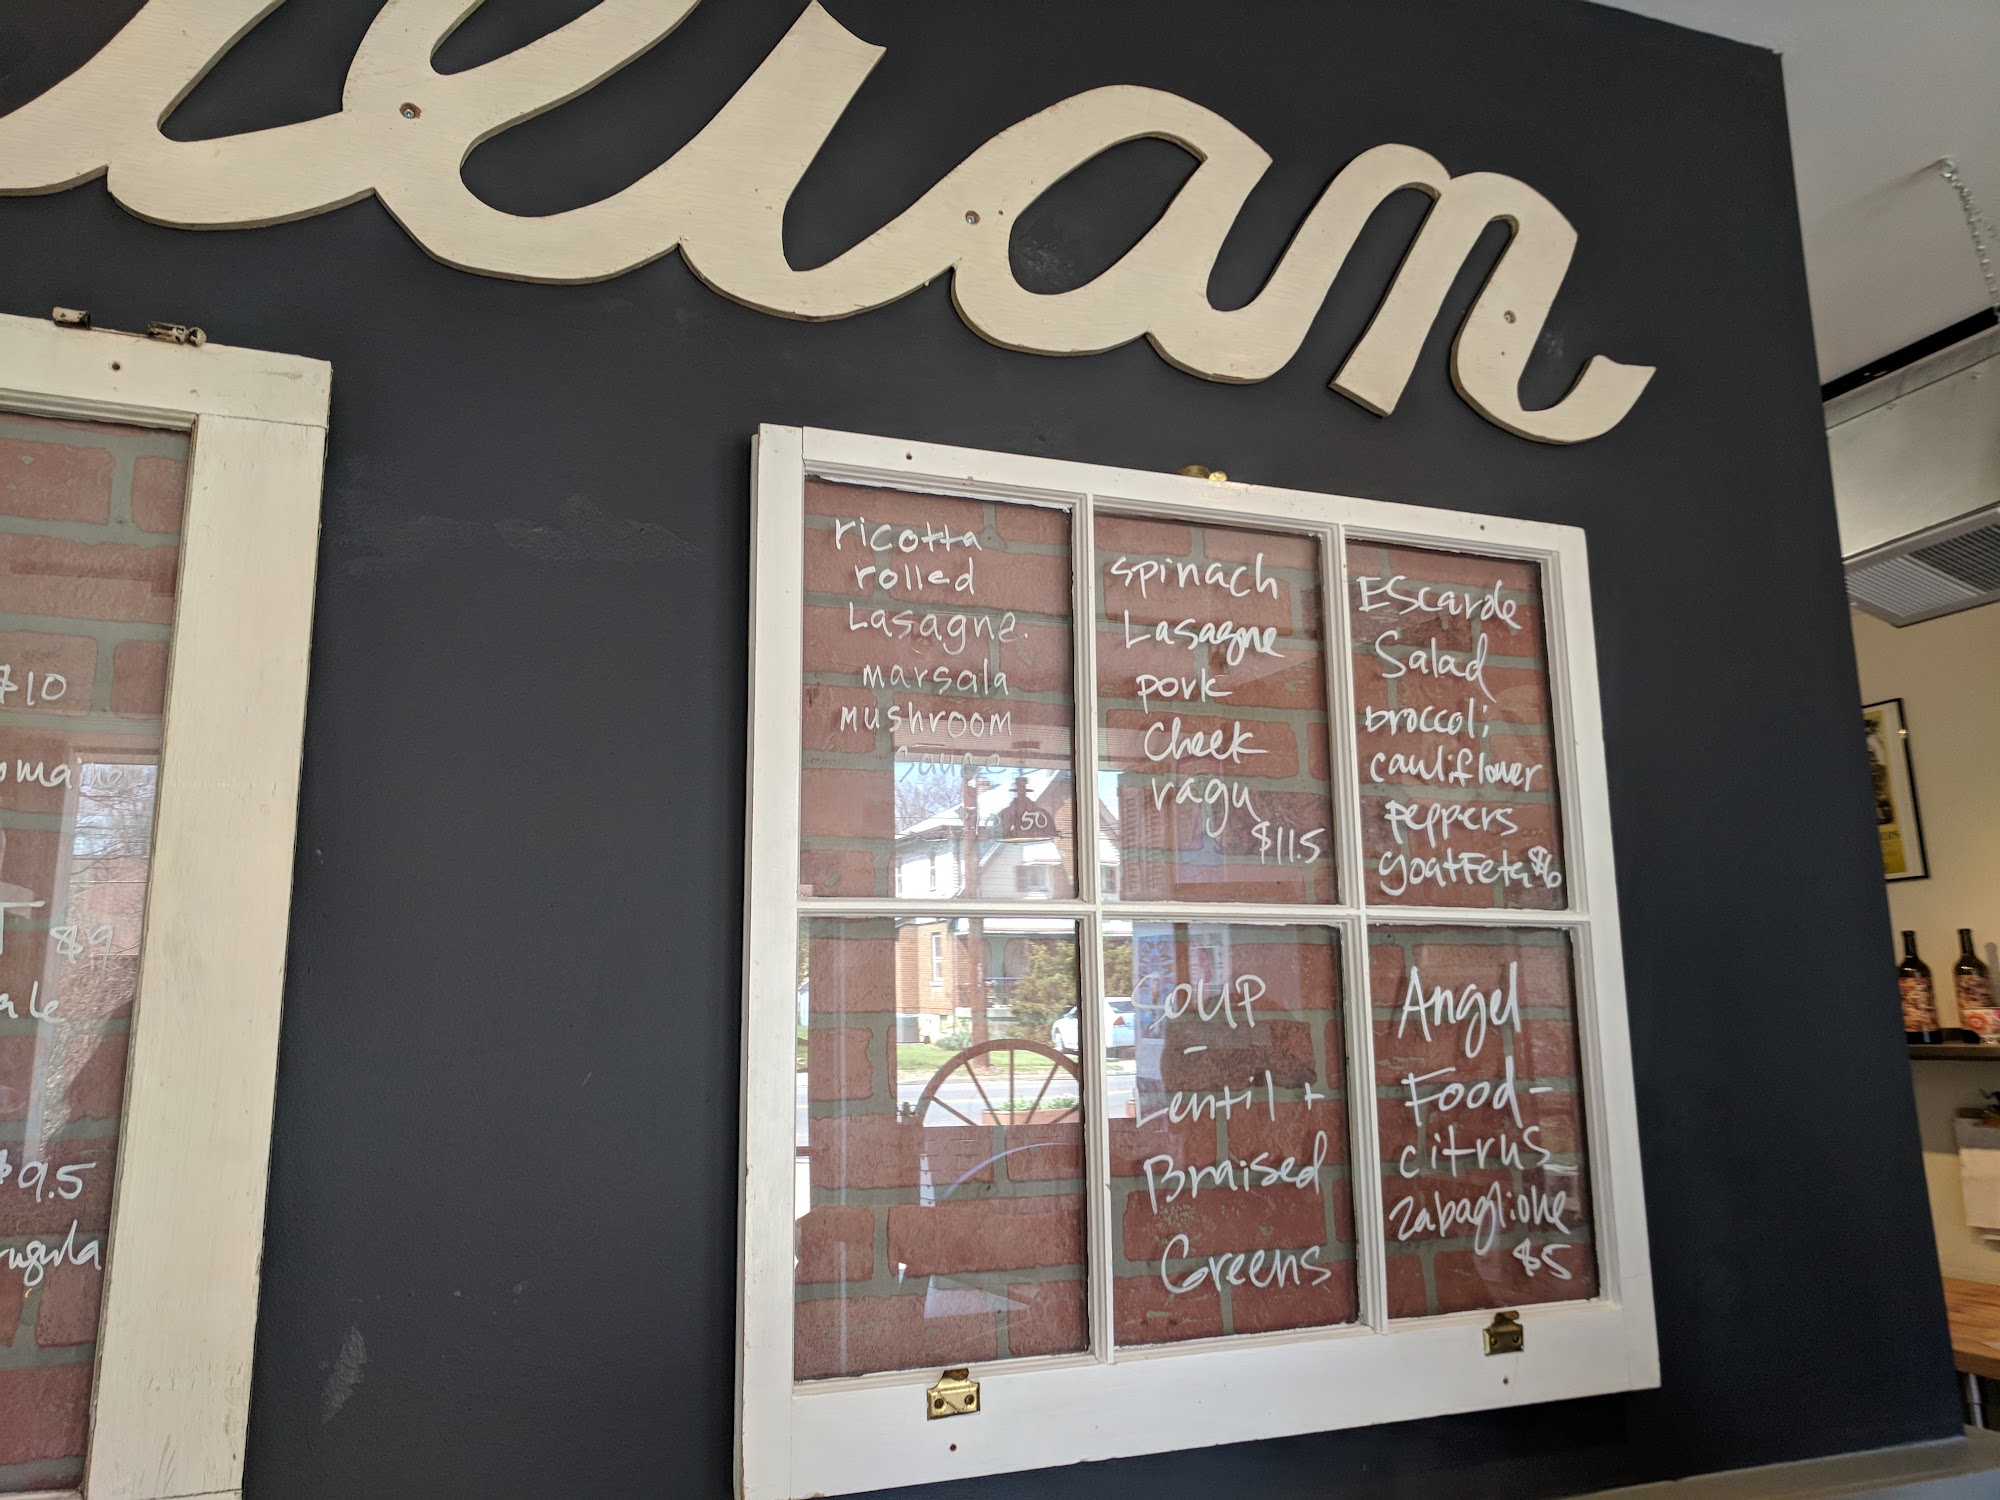 $10
$9
ale
$9.5
ricotta
rolled
Lasagne.
marsala
mushroom
Sauce
.50
spinach
Lasagne
pork
cheek
ragu
$11.5
Escarole
Salad
broccoli
cauliflower
peppers
goat Feta $6
SOUP
-
Lentil +
Braised
Greens
Angel
Food -
citrus
zabaglione
$5